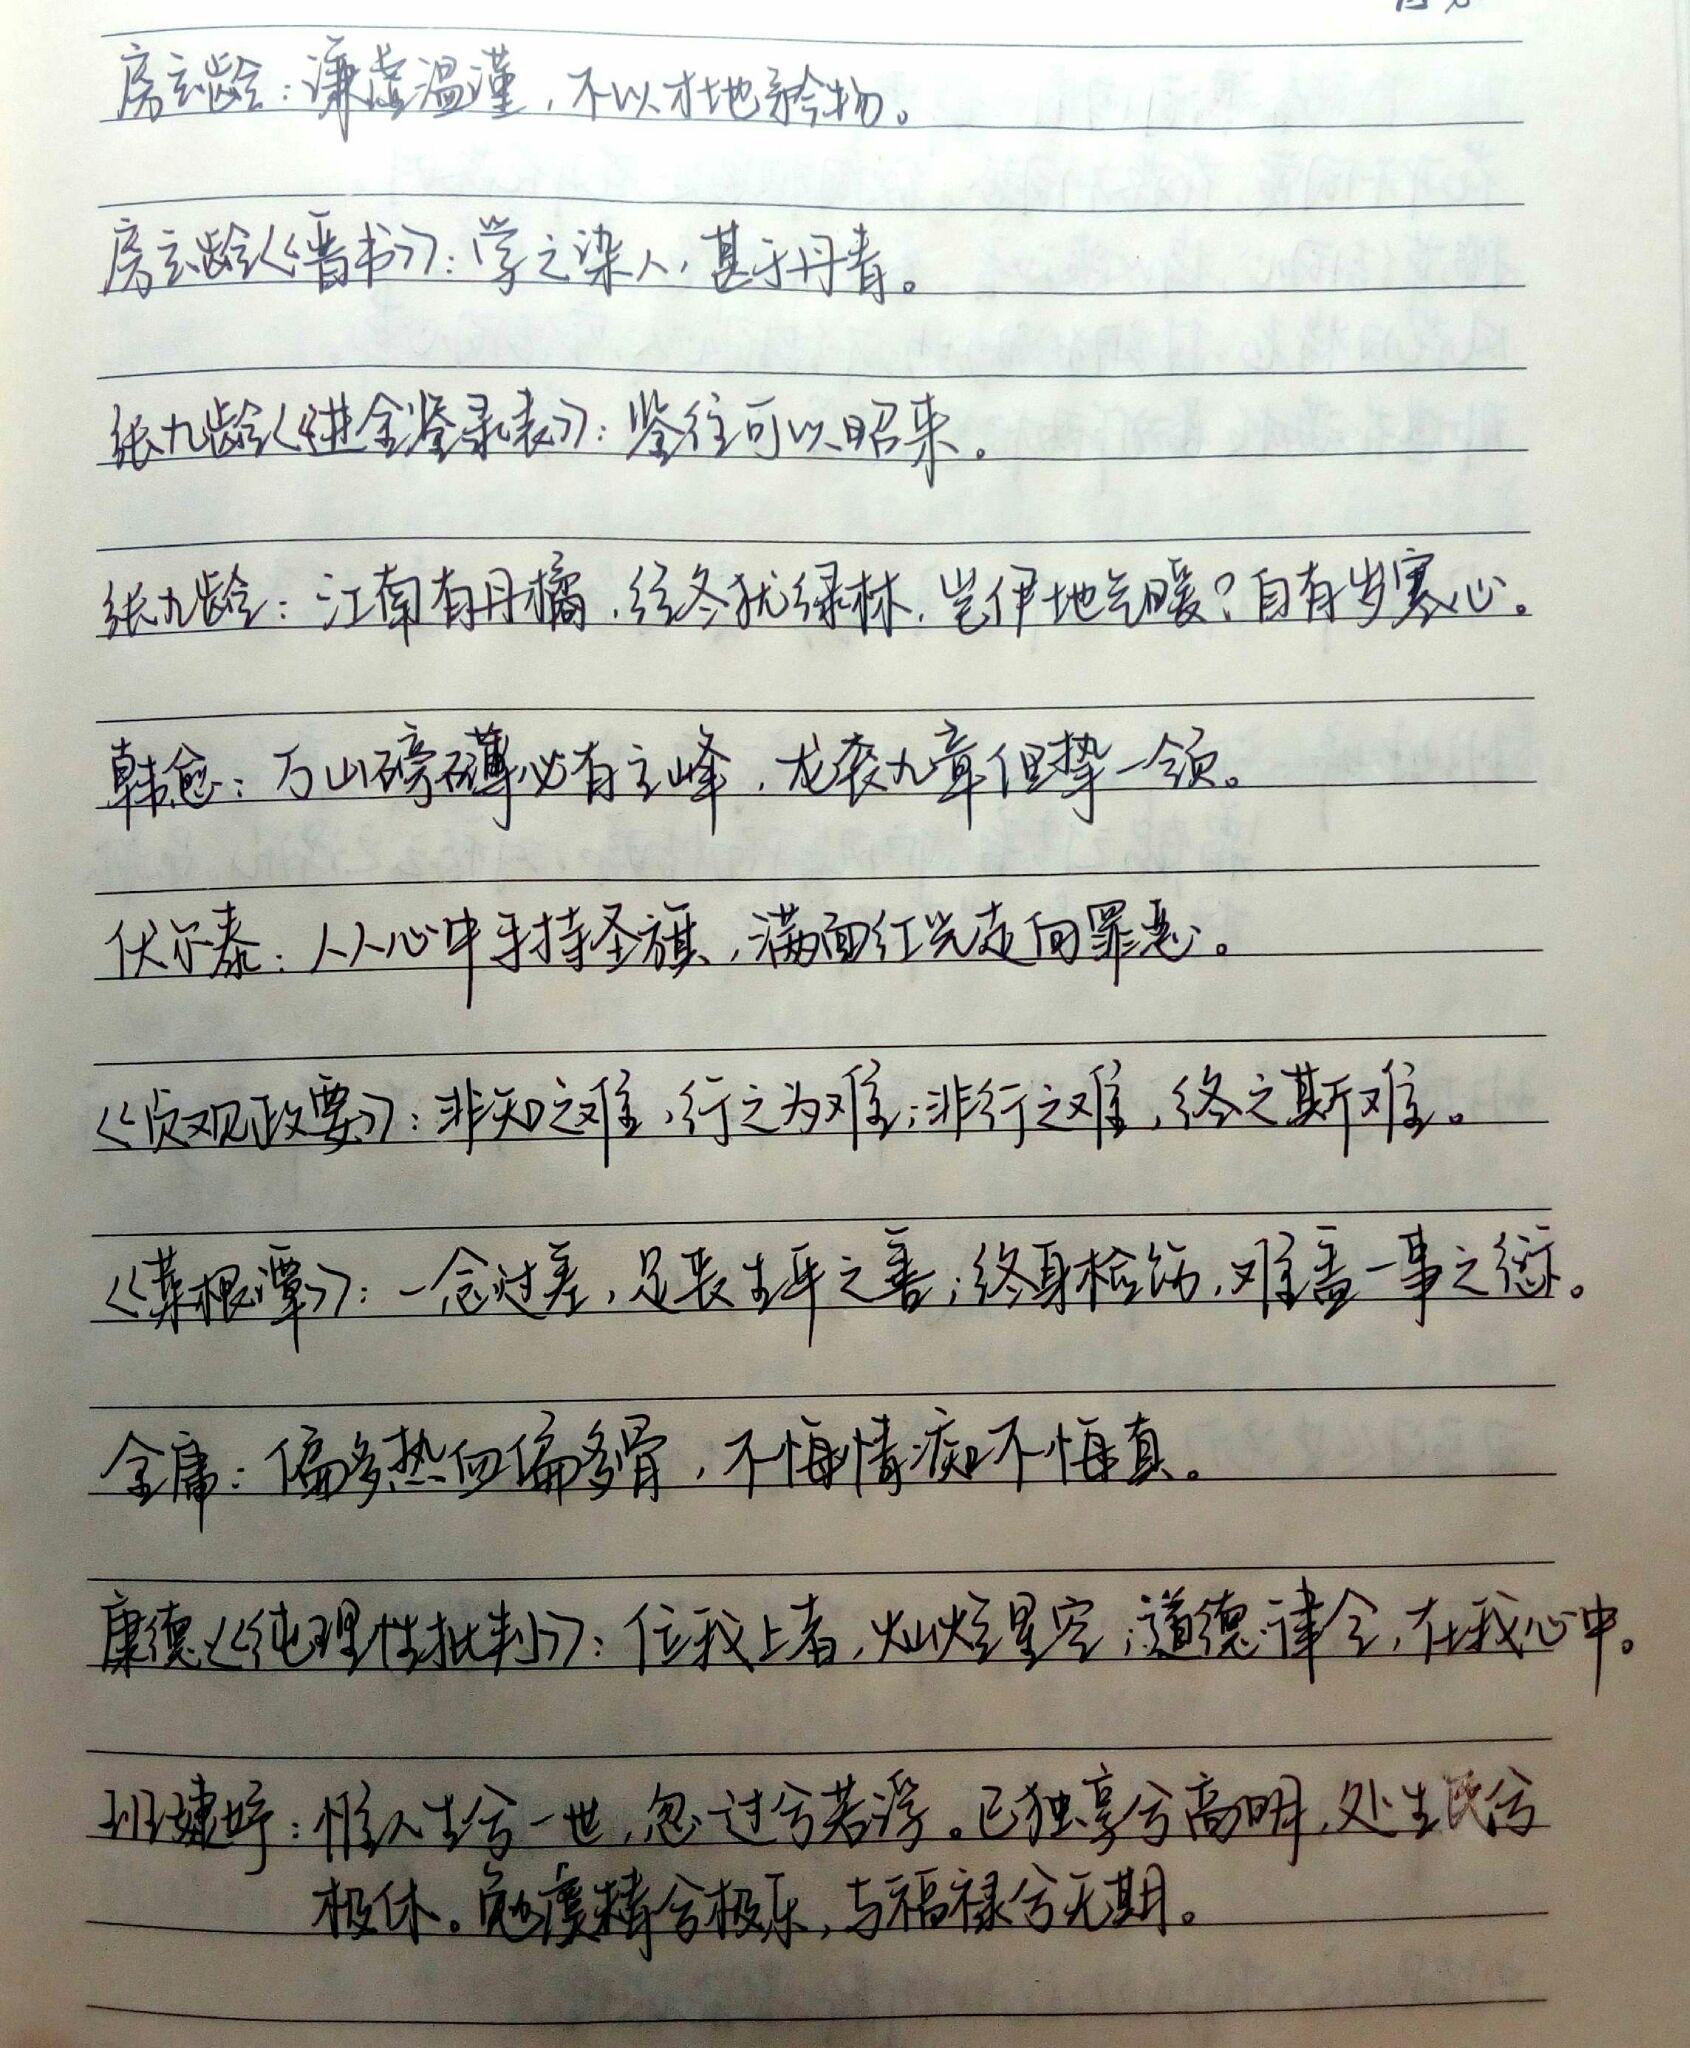 房玄龄：谦虚温谨，不以才地矜物。
房玄龄《晋书》：学之染人，甚于丹青。
张九龄《进金鉴录表》：鉴往可以昭来。
张九龄：江南有丹橘，经冬犹绿林，岂伊地气暖？自有岁寒心。
韩愈：万山磅礴必有主峰，龙衮九章但挚一领。
伏尔泰：人人心中手持圣旗，满面红光走向罪恶。
《贞观政要》：非知之难，行之为难；非行之难，终之斯难。
《菜根谭》：一念过差，足丧生平之善；终身检饬，难盖一事之愆。
金庸：偏多热血偏多骨，不悔情痴不悔真。
康德《纯理性批判》：位我上者，灿烂星空；道德律令，在我心中。
班婕妤：惟人生兮一世，忽一过兮若浮。已独享兮高明，处生民兮
极休。勉虞精兮极乐，与福禄兮无期。